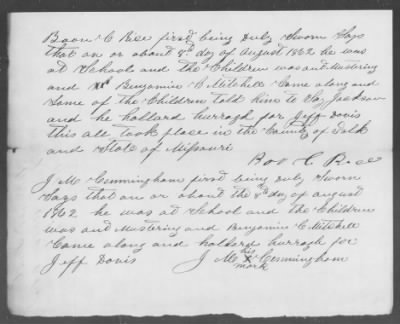 Boon C Rice first being Duly Sworn Says
that on or about 8th day of August 1862 he was
at School and the Children was out Mustering
and Benjamin C Mitchell Came along and
Some of the Children told him to Say Jackson
and he hollard hurragh for Jeff Davis
this all took place in the County of Polk
and State of Missouri
C. Rice
J M Cunningham first being Duly Sworn
Says that on or about the 8th day of august
1862 he was at School and the Children
was out Mustering and Benjamin C Mitchell
Came along and hollard hurragh for
Jeff Davis J M his X Cunningham
mark